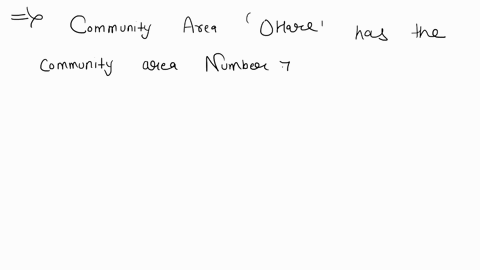 => Community Area 'OHare' has the
community area Number 7